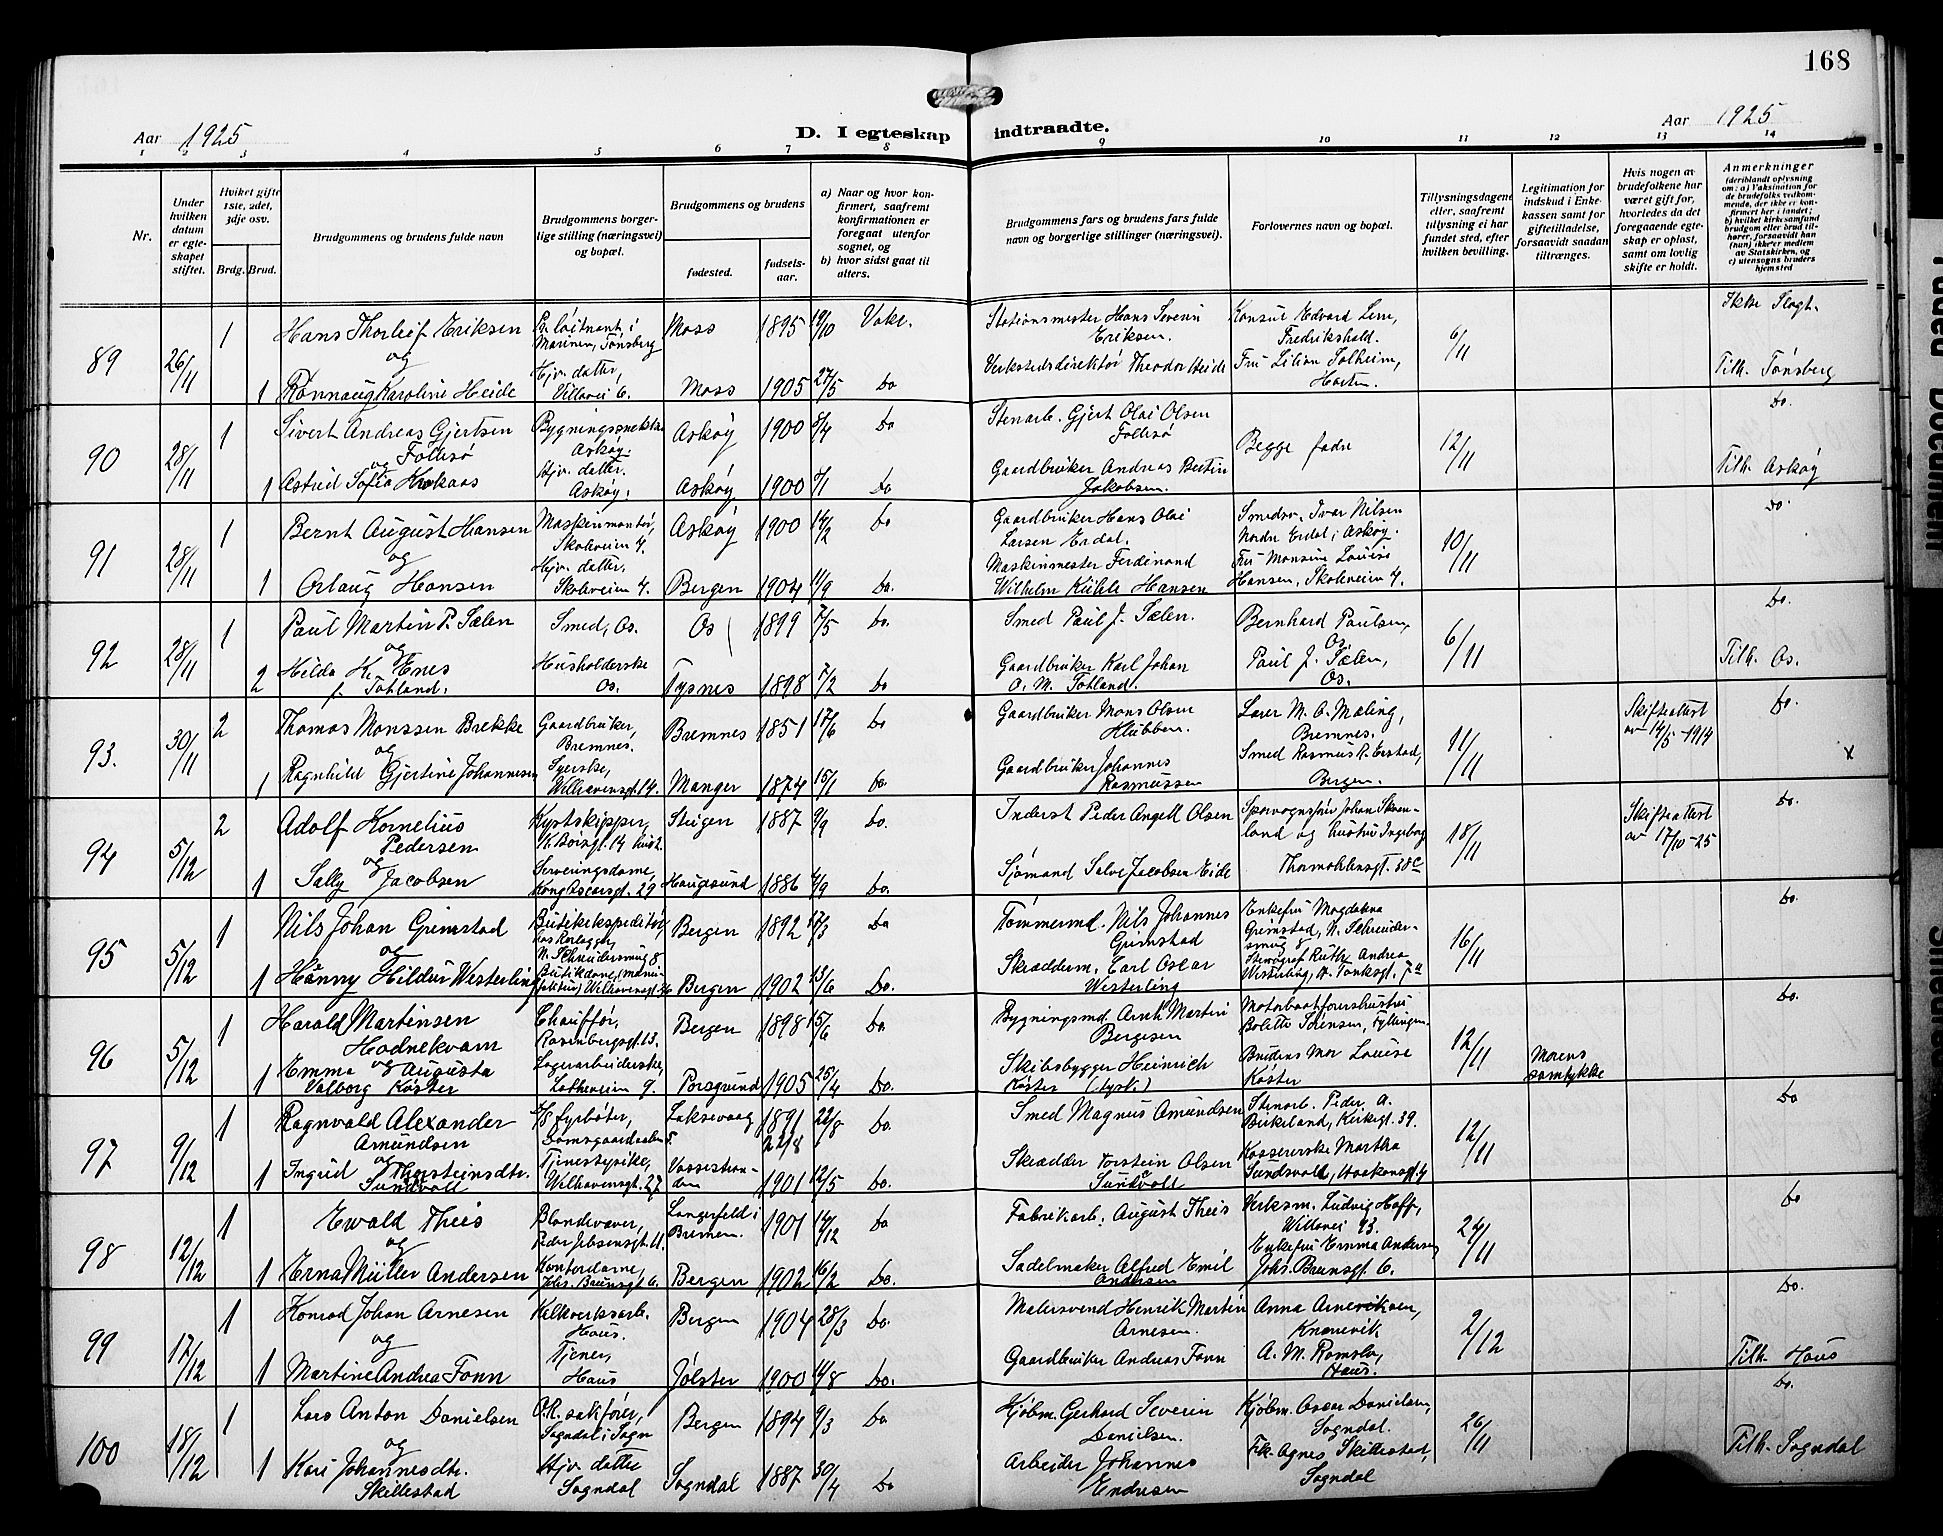 168
Aar 1925
D. I egteskap indtraadte.
Aar 1925
1 2 3 4 5 6 7 8 9 10 11 12 13 14
Nr.
Under hvilken datum er egteskapet stiftet.
Hvilket gifte 1ste, 2det, 3dje osv.
Brdg. Brud.
Brudgommens og brudens fulde navn
Brudgommens borgerlige stilling (næringsvei) og bopæl.
Brudgommens og brudens
fødested.
fødselsaar.
a) Naar og hvor konfirmert, saafremt konfirmationen er foregaat utenfor sognet, og
b) hvor sidst gaat til alters.
Brudgommens fars og brudens fars fulde navn og borgerlige stillinger (næringsvei).
Forlovernes navn og bopæl.
Tillysningsdagene eller, saafremt tillysning ei har fundet sted, efter hvilken bevilling.
Legitimation for indskud i Enkekassen samt for giftetilladelse, forsaavidt saadan tiltrænges.
Hvis nogen av brudefolkene har været gift før, hvorledes da det foregaaende egteskap er opløst, samt om lovlig skifte er holdt.
Anmerkninger
(deriblandt oplysning om: a) Vaksination for de brudefolks vedkommende, der ikke er konfirmert her i landet; b) hvilket kirkesamfund brudgom eller brud tilhører, forsaavidt han (hun) ikke er medlem av Statskirken, og c) utensogns bruders hjemsted
89 26/11 1 Hans Thorleif Eriksen Pr. løitnant i Marinen, Tønsberg Moss 1895 19/10 Vake. Stationsmester Hans Severin Eriksen. Konsul Edvard Lem, Fredrikshald. 6/11 Ikke Slegt.
og
1 Rønnaug Karoline Heide Hjv. datter, Villavei 6. Moss 1905 27/5 Do Verkstedsdirektør Theodor Heide Fru Lilian Solheim, Horten. Tilh. Tønsberg
90 28/11 1 Sivert Andreas Gjertsen Follesø Bygningssnekker Askøy. Askøy 1900 8/4 Do Stenarb. Gjert Olai Olsen Follesø Begge fædre 12/11 Do.
og
1 Astrid Sofia Haakaas Hjv. datter. Askøy. Askøy 1900 5/1 Do Gaardbruker Andreas Bertin Jakobsen. Tilh. Askøy
91 28/11 1 Bernt August Hansen Maskinmontør, Skoleveien 4. Askøy 1900 14/2 Do Gaardbruker Hans Olai Larsen Erdal. Smedsv. Ivar Nilsen Nordre Erdal i Askøy. 10/11 Do
og
1 Orlaug Hansen Hjv. datter, Skoleveien 4. Bergen 1904 11/9 Do. Maskinmester Ferdinand Wilhelm Kühle Hansen Fru Monsine Louise Hansen, Skoleveien 4.
92 28/11 1 Paul Martin P. Sælen Smed, Os. Os 1899 7/5 Do. Smed Paul J. Sælen. Bernhard Paulsen, Os 6/11 Do.
og
2 Hilda K. Enes f. Totland. Husholderske Os. Tysnes 1898 7/2 Do Gaardbruker Karl Johan O. M. Totland. Paul J. Sælen, Os. Tilh. Os.
93. 30/11 2 Thomas Monssen Brekke Gaardbruker, Bremnes. Bremnes 1851 17/6 Do Gaardbruker Mons Olsen Hubben. Lærer M. O. Mæling, Bremnes. 11/11 Skifteattest av 14/5-1914 Do.
og
1 Ragnhild Gjertine Johannesen Syerske, Welhavensgt. 14. Manger 1874 15/1 Do. Gaardbruker Johannes Rasmussen Smed Rasmus R. Eistad, Bergen. x
94 5/12 2 Adolf Kornelius Pedersen Kystskipper, Steigen 1887 9/9 Do. Inderst Peder Angell Olsen Sporvognsfører Johan Skarland og hustru Ingeborg 18/11 Skifteattest av 17/10-25 Do.
og
1 Sally Jacobsen Serveringsdame, Kong Oscarsgt. 29 Haugesund 1886 4/9 Do. Sjømand Salve Jacobsen Eide Thormøhlensgt. 38c
95 5/12 1 Nils Johan Grimstad Butikekspeditør, N. Schreudersmug 8 Bergen 1892 17/3 Do Tømmermd. Nils Johannes Grimstad Enkefru Magdalena Grimstad, N. Schreudersmug 8 16/11 Do.
og
1 Hanny Hildur Westerling Butikdame, Welhavensgt. 26 Bergen 1902 13/6 Do. Skrædderm. Carl Oscar Westerling Stenograf Ruth Andrea Westerling, H. Tonksgt. 7a
96 5/12 1 Harald Martinsen Hodnekvam Chauffør, Rosenbergsgt. 13. Bergen 1898 15/6 Do Bygningsmd Arnt Martin Bergesen Motorbaatførershustru Bolette Sørensen, Fyllingen. 12/11 Do.
og
1 Emma Augusta Valborg Köster Lagerarbeiderske, Lotheveien 9. Porsgrund 1905 25/4 Do. Skibsbygger Heinrich Köster (tysk.) Brudens Mor Louise Köster Morens samtykke
97 9/12 1 Ragnvald Alexander Amundsen Fyrbøter, Damsgaardsalmen 5. Laksevaag 1891 22/8 22/8 Do. Smed Magnus Amundsen Stenarb. Peder A. Birkeland, Kirkegt. 39. 12/11 Do
og
1 Ingrid Thorsteinsdtr. Sundvoll Tjenestepike, Welhavensgt. 27 Vossestranden 1901 12/5 Do. Skrædder Torstein Olsen Sundvoll Kassererske Martha Sundvoll, Haakonsgt. 4
98 12/12 1 Ewald Theis Blondevæver, Peder Jebsensgt. 11. Langerfeld i Bremen. 1901 14/12 Do Fabrikarb. August Theis Verksm. Ludvig Hoff, Villavei 93. 24/11 Do
og
1 Erna Müller Andersen Kontordame, Johs. Brunsgt. 6. Bergen 1902 16/2 Do. Sadelmaker Alfred Emil Andersen Enkefru Emma Andersen, Johs. Brunsgt. 6.
99 17/12 1 Konrad Johan Arnesen Kalkverksarb. Haus. Bergen 1904 28/3 Do. Malersvend Henrik Martin Arnesen. Anna Arnevikven, Knarevik 2/12 Do.
og
1 Martine Andrea Fonn Tjener, Haus Jølster 1900 11/8 Do. Gaardbruker Andreas Fonn A. M. Romslo, Haus. Tilh. Haus
100 18/12 1 Lars Anton Danielsen O.R. sakfører, Sogndal i Sogn Bergen 1894 9/3 Do Kjøbm. Gerhard Severin Danielsen. Kjøbm. Oscar Danielsen, Sogndal. 26/11 Do.
og
1 Kari Johannesdtr. Skillestad Hjv. datter Sogndal Sogndal 1887 30/4 Do Arbeider Johannes Endresen Frk. Agnes Skillestad, Sogndal Tilh. Sogndal